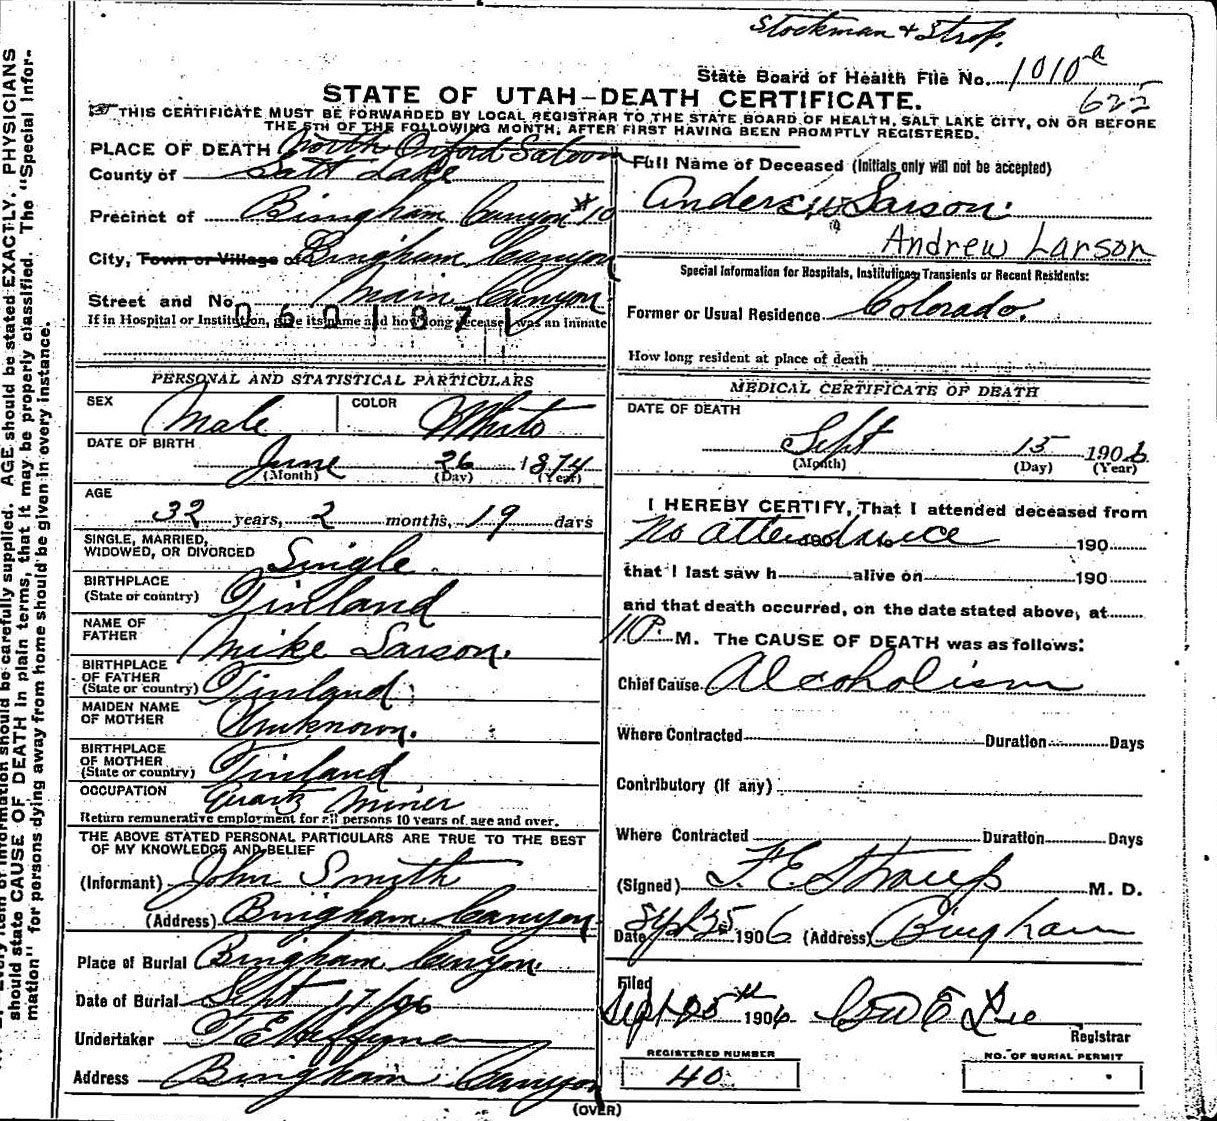 Stockman & Strop.
State Board of Health File No. 1010 a
622
STATE OF UTAH—DEATH CERTIFICATE.
THIS CERTIFICATE MUST BE FORWARDED BY LOCAL REGISTRAR TO THE STATE BOARD OF HEALTH, SALT LAKE CITY, ON OR BEFORE
THE 5TH OF THE FOLLOWING MONTH, AFTER FIRST HAVING BEEN PROMPTLY REGISTERED.
PLACE OF DEATH North Oxford Saloon
County of Salt Lake
Precinct of Bingham Canyon #10
City, Town or Village of Bingham Canyon
Street and No. Main Canyon
0601871
If in Hospital or Institution, give its name and how long deceased was an inmate
PERSONAL AND STATISTICAL PARTICULARS
SEX Male COLOR White
DATE OF BIRTH
June 26 1874
(Month) (Day) (Year)
AGE
32 years, 2 months, 19 days
SINGLE, MARRIED,
WIDOWED, OR DIVORCED Single
BIRTHPLACE
(State or country) Finland
NAME OF
FATHER Mike Larson.
BIRTHPLACE
OF FATHER
(State or country) Finland
MAIDEN NAME
OF MOTHER Unknown.
BIRTHPLACE
OF MOTHER
(State or country) Finland
OCCUPATION Quartz Miner
Return remunerative employment for all persons 10 years of age and over.
THE ABOVE STATED PERSONAL PARTICULARS ARE TRUE TO THE BEST
OF MY KNOWLEDGE AND BELIEF
(Informant) John Smith
(Address) Bingham Canyon
Place of Burial Bingham Canyon.
Date of Burial Sept 17/06
Undertaker
Address Bingham Canyon
Full Name of Deceased (Initials only will not be accepted)
Andrew Larson.
Andrew Larson
Special Information for Hospitals, Institutions, Transients or Recent Residents:
Former or Usual Residence Colorado.
How long resident at place of death
MEDICAL CERTIFICATE OF DEATH
DATE OF DEATH
Sept 15 1906
(Month) (Day) (Year)
I HEREBY CERTIFY, That I attended deceased from
No attendance 190
that I last saw h alive on 190
and that death occurred, on the date stated above, at
11 P. M. The CAUSE OF DEATH was as follows:
Chief Cause Alcoholism
Where Contracted Duration Days
Contributory (if any)
Where Contracted Duration Days
(Signed) F. E. Straup M. D.
Date Sept 25 1906 (Address) Bingham
Filed
Sept 25th 1906 Lee
Registrar
REGISTERED NUMBER
40
NO. OF BURIAL PERMIT
(OVER)
should state CAUSE OF DEATH in plain terms, that it may be properly classified. The "Special Infor-
mation" for persons dying away from home should be given in every instance.
Every item of information should be carefully supplied. AGE should be stated EXACTLY. PHYSICIANS